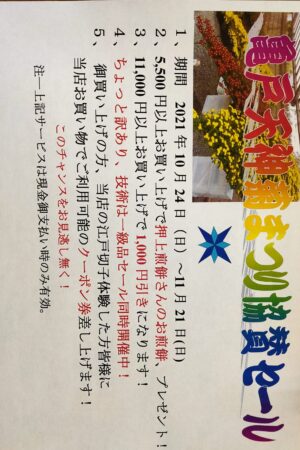 亀戸天神菊まつり協賛セール
1、期間 2021年10月24日(日)~11月21日(日)
2、5,500円以上お買い上げで押上煎餅さんのお煎餅、プレゼント!
3、11,000円以上お買い上げで1,000円引きになります!
4、ちょっと訳あり、技術は一級品セール同時開催中!
5、御買い上げの方、当店の江戸切子体験した方皆様に
当店お買い物でご利用可能のクーポン券差し上げます!
このチャンスをお見逃し無く!
注―上記サービスは現金御支払い時のみ有効。